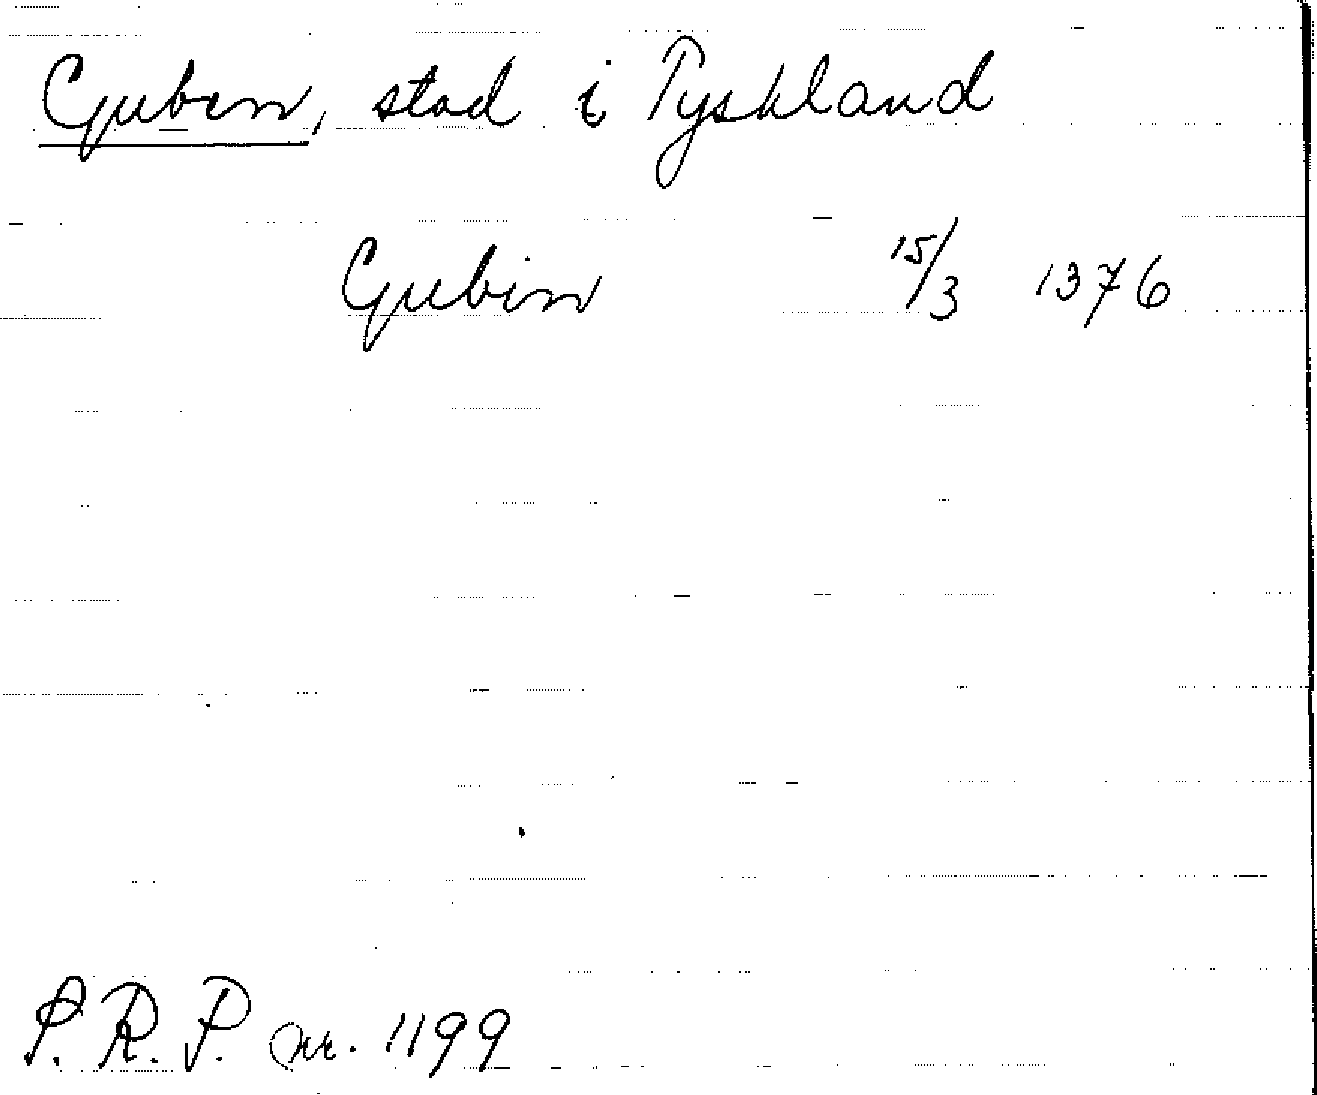 Guben, stad i Tyskland
Gubin 15/3 1376
S.R.P. nr. 1199